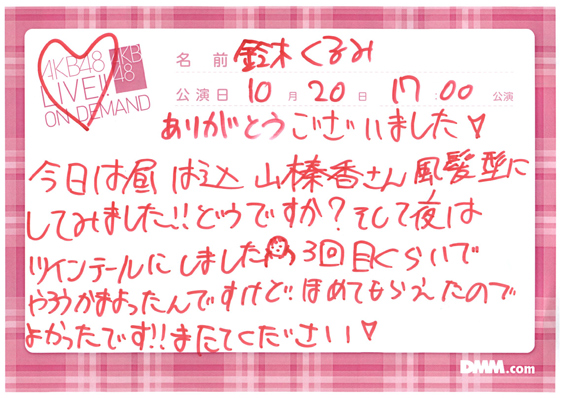 AKB48
LIVE!!
ON DEMAND
AKB
48
名前 鈴木くるみ
公演日 10月20日 17:00公演
ありがとうございました♡
今日は昼は込山榛香さん風髪型に
してみました!!どうですか?そして夜は
ツインテールにしました 3回目くらいで
やろうかまよったんですけど!!ほめてもらえたので
よかったです!!またてください♡
DMM.com